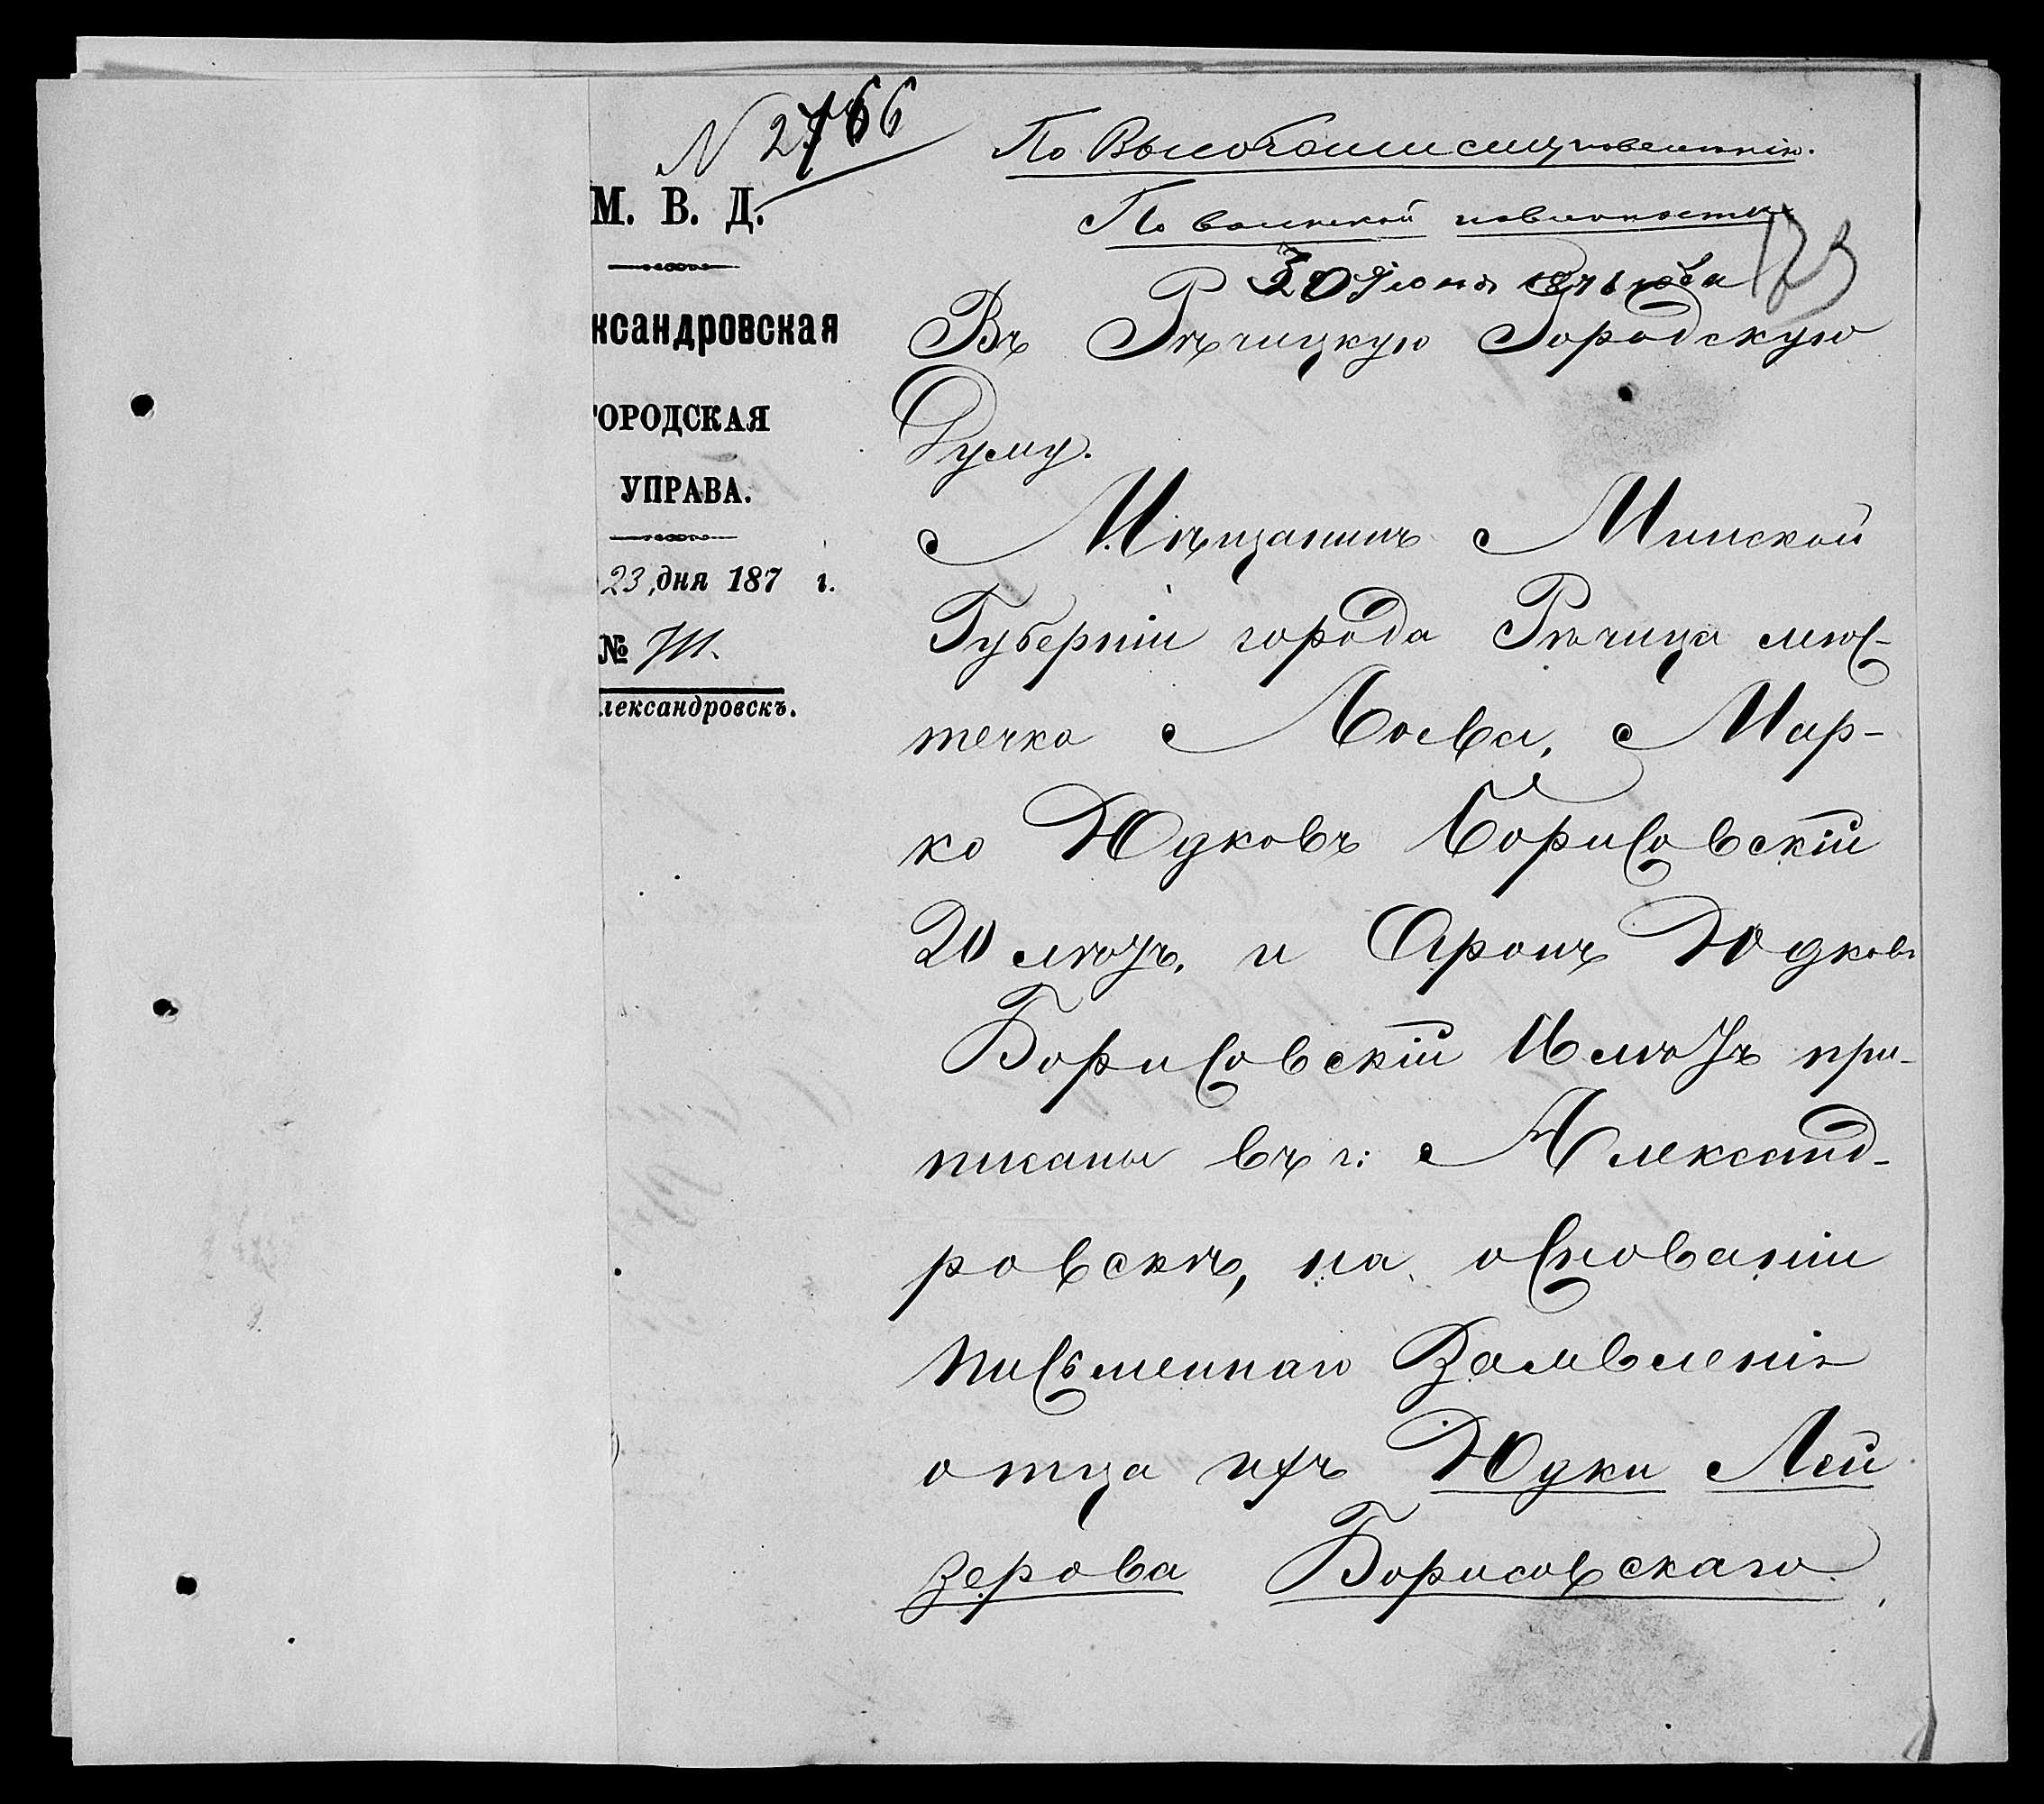 N 2766
М. В. Д.
ксандровская
ГОРОДСКАЯ
УПРАВА.
23, дня 187 г.
№
лександровскъ.
По Высочайшему повелѣнію.
По воинской повинности
30 Іюня 1876 года
123
Въ Рѣчицкую Городскую
Думу.
Мѣщанинъ Минской
Губерніи города Рѣчица мѣс-
течка Лоева, Мар-
ко Юдковъ Борисовскій
20 лѣтъ, и Аронъ Юдковъ
Борисовскій 16 лѣтъ при-
писаны въ г: Александ-
ровскѣ, на основаніи
письменнаго Заявленія
отца ихъ Юдки Лей
зерова Борисовскаго